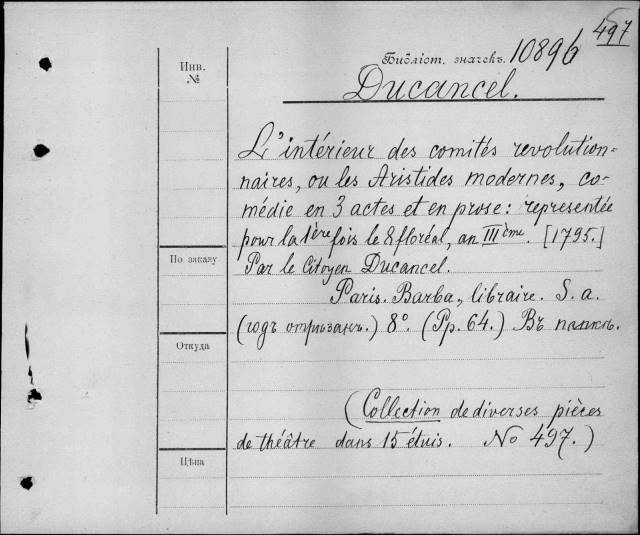 497
Библіот. значекъ. 10896
Инв.
№
Ducancel.
L'intérieur des comités revolution=
naires, ou les Aristides modernes, co-
médie en 3 actes et en prose: representée
pour la 1ère fois le 8 floréal, an IIIème. [1795.]
По заказу
Par le Citoyen Ducancel.
Paris. Barba, libraire. S. a.
(годъ отрѣзанъ.) 8°. (Pp. 64.) Въ папкѣ.
Откуда
(Collection de diverses pièces
de théâtre dans 15 étuis. No 497.)
Цѣна